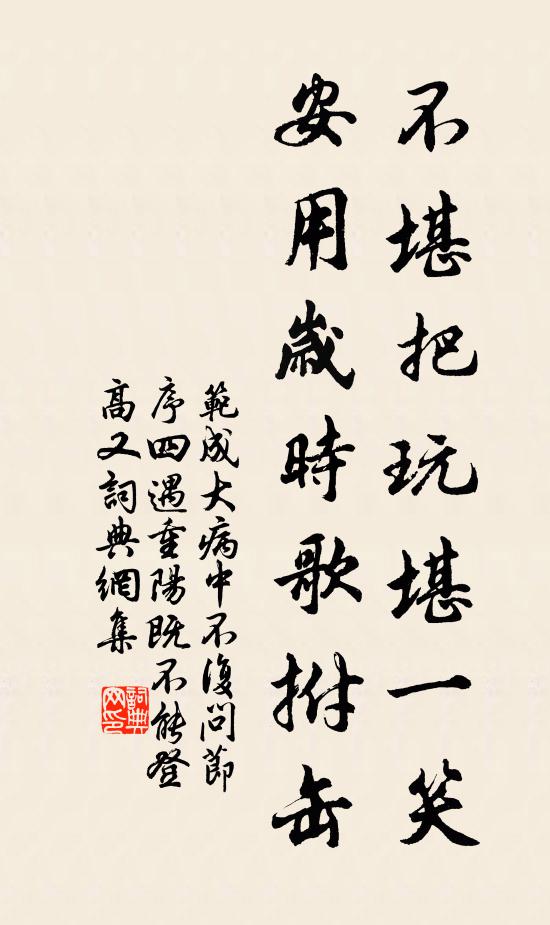 不堪把玩堪一笑
安用歲時歌拊缶
範成大病中不復問節
序四遇重陽既不能登
高又詞典網集
詞典網印